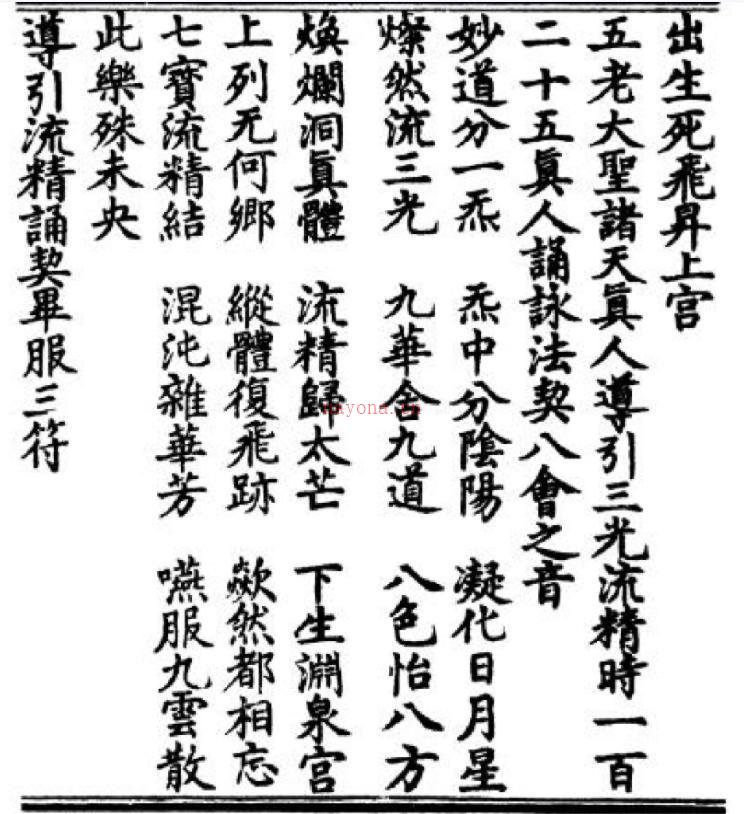 出生死飛昇上宫
五老大聖諸天眞人導引三光流精時一百
二十五眞人誦詠法契八會之音
妙道分一炁　炁中分陰陽　凝化日月星
燦然流三光　九華含九道　八色怡八方
煥爛洞眞體　流精歸太芒　下生淵泉宫
上列无何鄉　縱體復飛跡　歘然都相忘
七寶流精結　混沌雜華芳　嚥服九雲散
此樂殊未央
導引流精誦契畢服三符